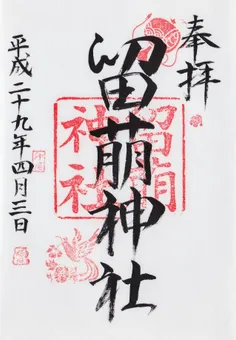 奉拝
留萌神社
留萌
神社
平成二十九年四月三日